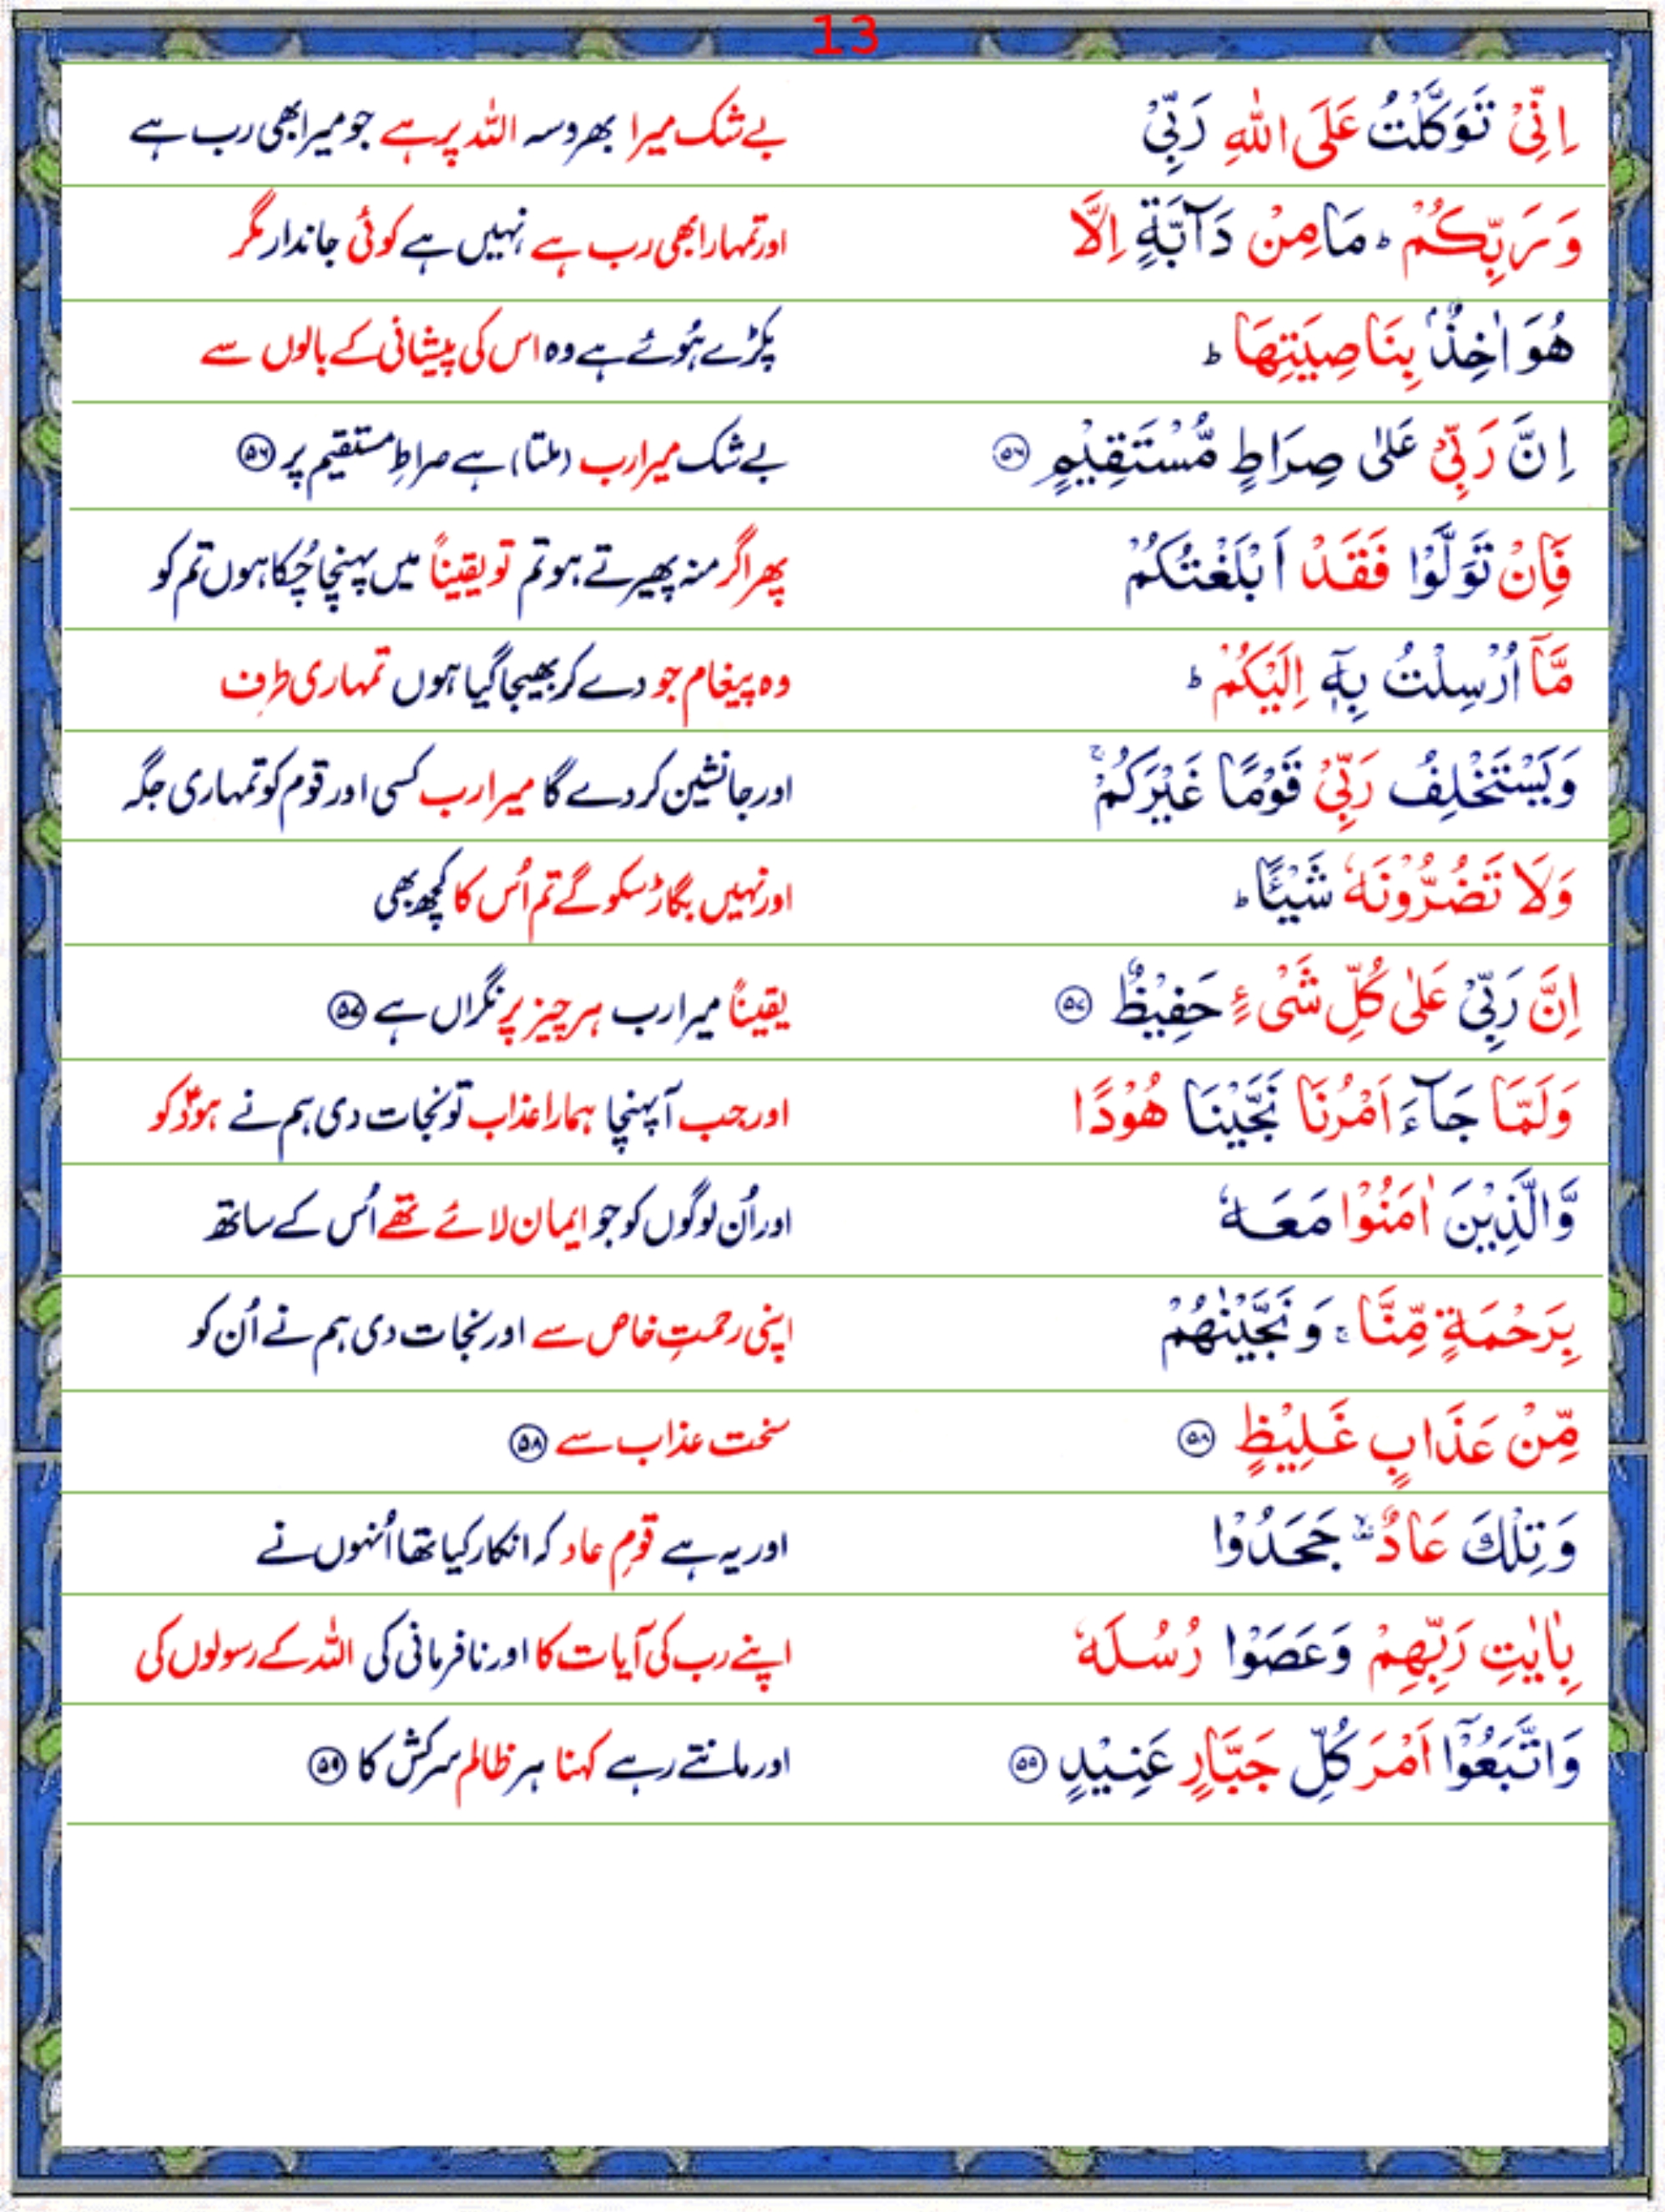 13
اِنِّيْ تَوَكَّلْتُ عَلَى اللّٰهِ رَبِّيْ
بے شک میرا بھروسہ اللہ پر ہے جو میرا بھی رب ہے
وَ رَبِّكُمْ ؕ مَا مِنْ دَآبَّةٍ اِلَّا
اور تمہارا بھی رب ہے نہیں ہے کوئی جاندار مگر
هُوَ اٰخِذٌۢ بِنَاصِيَتِهَا ؕ
پکڑے ہُوئے ہے وہ اس کی پیشانی کے بالوں سے
اِنَّ رَبِّيْ عَلٰى صِرَاطٍ مُّسْتَقِيْمٍ ۵۶
بے شک میرا رب (ملتا) ہے صراطِ مستقیم پر ۵۶
فَاِنْ تَوَلَّوْا فَقَدْ اَبْلَغْتُكُمْ
پھر اگر منہ پھیرتے ہو تم تو یقیناً میں پہنچا چُکا ہوں تم کو
مَّاۤ اُرْسِلْتُ بِهٖۤ اِلَيْكُمْ ؕ
وہ پیغام جو دے کر بھیجا گیا ہوں تمہاری طرف
وَيَسْتَخْلِفُ رَبِّيْ قَوْمًا غَيْرَكُمْ ۚ
اور جانشین کر دے گا میرا رب کسی اور قوم کو تمہاری جگہ
وَلَا تَضُرُّوْنَهٗ شَيْئًا ؕ
اور نہیں بگاڑ سکو گے تم اُس کا کچھ بھی
اِنَّ رَبِّيْ عَلٰى كُلِّ شَيْءٍ حَفِيْظٌ ۵۷
یقیناً میرا رب ہر چیز پر نگراں ہے ۵۷
وَلَمَّا جَآءَ اَمْرُنَا نَجَّيْنَا هُوْدًا
اور جب آ پہنچا ہمارا عذاب تو نجات دی ہم نے ہودؑ کو
وَّالَّذِيْنَ اٰمَنُوْا مَعَهٗ
اور اُن لوگوں کو جو ایمان لائے تھے اُس کے ساتھ
بِرَحْمَةٍ مِّنَّا ۚ وَ نَجَّيْنٰهُمْ
اپنی رحمتِ خاص سے اور نجات دی ہم نے اُن کو
مِّنْ عَذَابٍ غَلِيْظٍ ۵۸
سخت عذاب سے ۵۸
وَ تِلْكَ عَادٌ ۙ جَحَدُوْا
اور یہ ہے قومِ عاد کہ انکار کیا تھا اُنہوں نے
بِاٰيٰتِ رَبِّهِمْ وَعَصَوْا رُسُلَهٗ
اپنے رب کی آیات کا اور نافرمانی کی اللہ کے رسولوں کی
وَاتَّبَعُوْۤا اَمْرَ كُلِّ جَبَّارٍ عَنِيْدٍ ۵۹
اور مانتے رہے کہنا ہر ظالم سرکش کا ۵۹